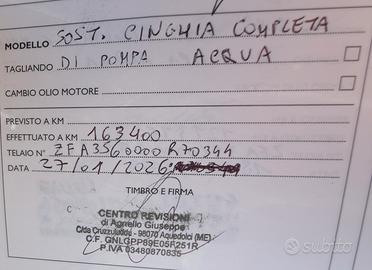 MODELLO SOST. CINGHIA COMPLETA
TAGLIANDO DI POMPA ACQUA
CAMBIO OLIO MOTORE
PREVISTO A KM
EFFETTUATO A KM 163400
TELAIO N° ZFA3560000R70344
DATA 27/01/2026
TIMBRO E FIRMA
CENTRO REVISIONI
di Agnello Giuseppe
C/da Cruzzuliddi - 98070 Acquedolci (ME)
C.F. GNLGPP89E05F251R
P.IVA 03480870835
subito